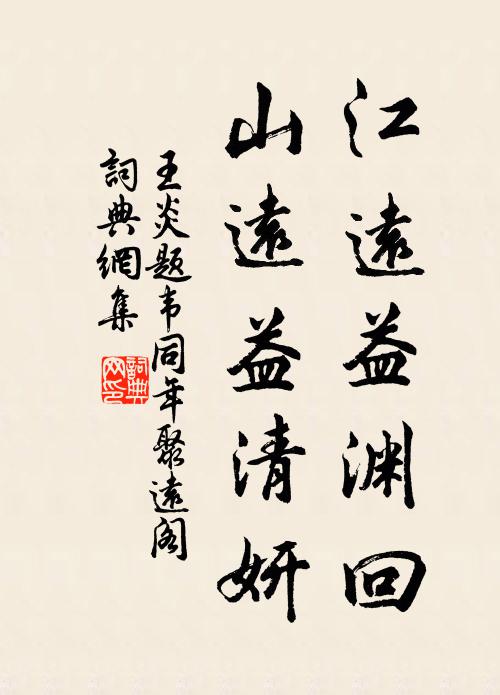 江遠益渊回
山遠益清妍
王炎题韦同年聚遠阁
詞典網集
詞典网印